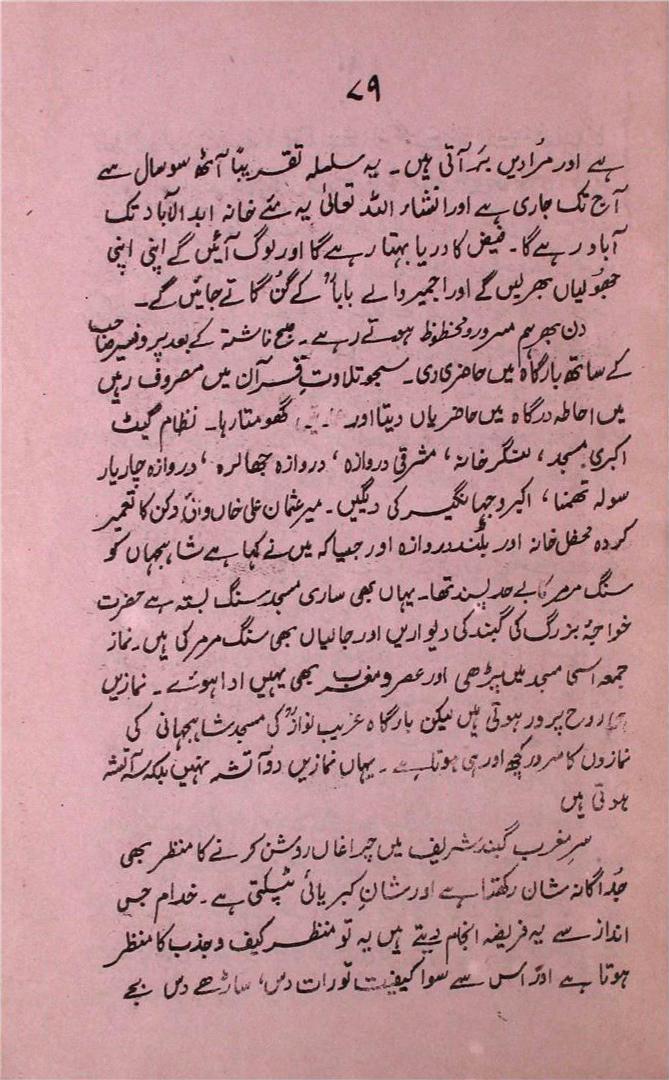 ۷۹
ہے اور مرادیں بَر آتی ہیں۔ یہ سلسلہ تقریباً آٹھ سو سال سے
آج تک جاری ہے اور انشاء اللہ تعالیٰ یہ مئے خانہ ابد الآباد تک
آباد رہے گا۔ فیض کا دریا بہتا رہے گا اور لوگ آئیں گے اپنی اپنی
جھولیاں بھریں گے اور اجمیر والے باباؒ کے گُن گاتے جائیں گے۔
دن بھر ہم مسرور و محظوظ ہوتے رہے۔ صبح ناشتہ کے بعد پروفیسر صاحب
کے ساتھ بارگاہ میں حاضری دی۔ سجو تلاوتِ قرآن میں مصروف رہیں
میں احاطہ درگاہ میں حاضریاں دیتا اور گھومتا رہا۔ نظام گیٹ
اکبری مسجد، لنگر خانہ، مشرقی دروازہ، دروازہ جھالرہ، دروازہ چار یار
سولہ تھمنا، اکبر و جہانگیر کی دیگیں۔ میر عثمان علی خاں والیٔ دکن کا تعمیر
کردہ محفل خانہ اور بلند دروازہ اور جیسا کہ میں نے کہا ہے شاہجہاں کو
سنگ مرمر کا بے حد پسند تھا۔ یہاں بھی ساری مسجد سنگ بستہ ہے حضرت
خواجۂ بزرگ کی گنبد کی دیواریں اور جالیاں بھی سنگ مرمر کی ہیں۔ نماز
جمعہ اسی مسجد میں پڑھی اور عصر و مغرب بھی یہیں ادا ہوئے۔ نمازیں
روح پرور ہوتی ہیں لیکن بارگاہ غریب نوازؒ کی مسجد شاہجہانی کی
نمازوں کا سرور کچھ اور ہی ہوتا ہے۔ یہاں نمازیں دو آتشہ نہیں بلکہ سہ آتشہ
ہوتی ہیں
سرِ مغرب گنبد شریف میں چراغاں روشن کرنے کا منظر بھی
جُداگانہ شان رکھتا ہے اور شانِ کبریائی ٹپکتی ہے۔ خدام جس
انداز سے یہ فریضہ انجام دیتے ہیں یہ تو منظر کیف و جذب کا منظر
ہوتا ہے اور اس سے سوا کیفیت تو رات دس، ساڑھے دس بجے